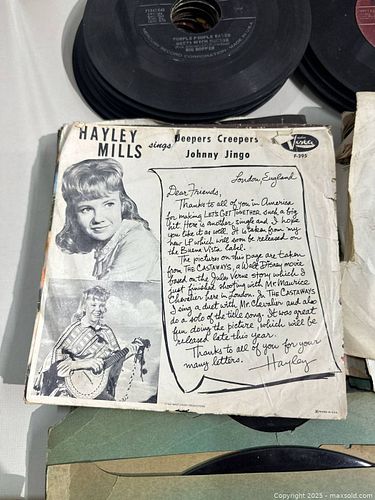 PURPLE PEOPLE EATER
BIG BOPPER
MERCURY RECORD CORPORATION MADE IN U.S.A.
HAYLEY
MILLS sings Jeepers Creepers
Johnny Jingo
Vista
F-395
London, England
Dear Friends,
Thanks to all of you in America
for making LET'S GET TOGETHER such a big
hit. Here is another single and I hope
you like it as well. It is taken from my
new LP which will soon be released on
the Buena Vista label.
The pictures on this page are taken
from THE CASTAWAYS, a Walt Disney movie
based on the Jules Verne story which I
just finished shooting with Mr. Maurice
Chevalier here in London. In THE CASTAWAYS
I sing a duet with Mr. Chevalier and also
do a solo of the title song. It was great
fun doing the picture, which will be
released late this year.
Thanks to all of you for your
many letters.
Hayley
Copyright © 2025 - maxsold.com